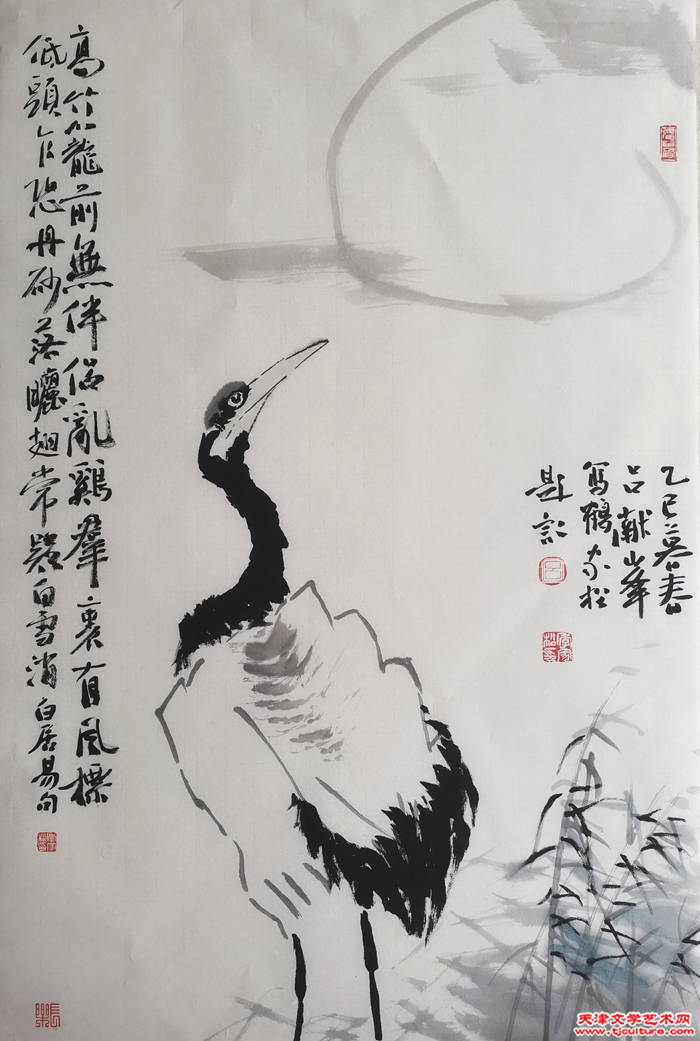 高竹籠前無伴侣亂鷄羣裏有風標
低頭乍恐丹砂落曬翅常疑白雪消白居易句
乙巳暮春
吕献峯
写鶴家松
題記
長樂
天津文学艺术网
www.tjculture.com